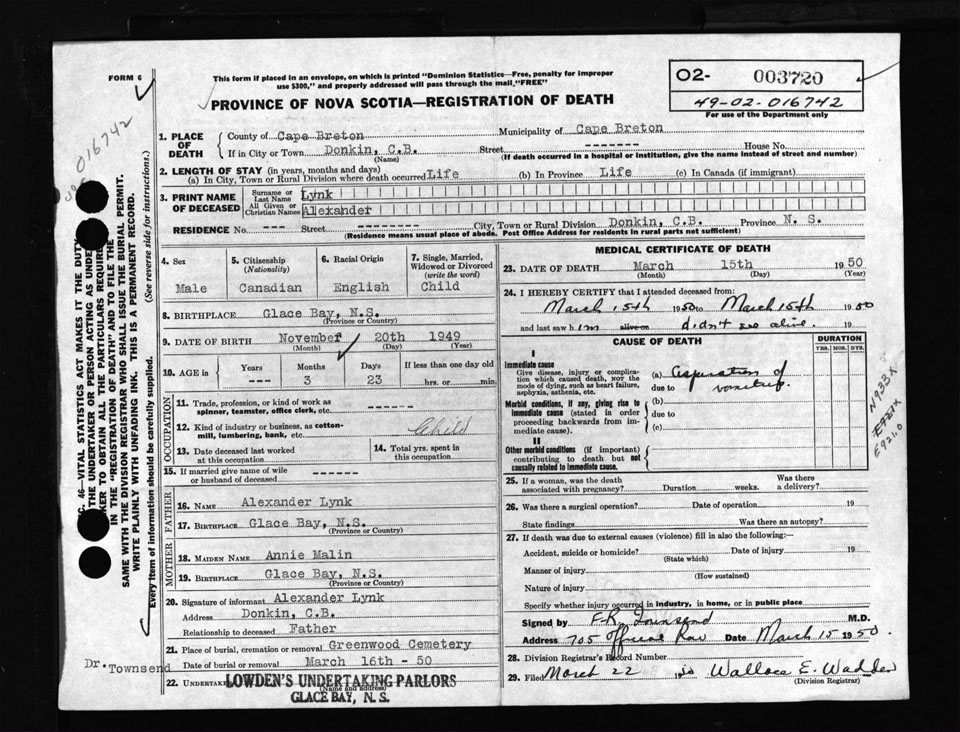 FORM 6
This form if placed in an envelope, on which is printed "Dominion Statistics—Free, penalty for improper
use $300," and properly addressed will pass through the mail, "FREE"
O2- 003720
49-02-016742
For use of the Department only
PROVINCE OF NOVA SCOTIA—REGISTRATION OF DEATH
016742
1. PLACE OF DEATH
County of Cape Breton Municipality of Cape Breton
If in City or Town Donkin, C.B. Street -------- House No.
(Name) (If death occurred in a hospital or institution, give the name instead of street and number)
2. LENGTH OF STAY (in years, months and days)
(a) In City, Town or Rural Division where death occurred Life (b) In Province Life (c) In Canada (if immigrant)
3. PRINT NAME OF DECEASED
Surname or Last Name Lynk
All Given or Christian Names Alexander
RESIDENCE No. --- Street -------- City, Town or Rural Division Donkin, C.B. Province N. S.
(Residence means usual place of abode. Post Office Address for residents in rural parts not sufficient)
4. Sex 5. Citizenship (Nationality) 6. Racial Origin 7. Single, Married, Widowed or Divorced (write the word)
Male Canadian English Child
8. BIRTHPLACE Glace Bay, N.S.
(Province or Country)
9. DATE OF BIRTH November 20th 1949
(Month) (Day) (Year)
10. AGE in Years Months Days If less than one day old
--- 3 23 hrs. or min.
OCCUPATION
11. Trade, profession, or kind of work as
spinner, teamster, office clerk, etc. ------
12. Kind of industry or business, as cotton-
mill, lumbering, bank, etc. Child
13. Date deceased last worked
at this occupation
14. Total yrs. spent in
this occupation
15. If married give name of wife
or husband of deceased ------
FATHER
16. Name Alexander Lynk
17. Birthplace Glace Bay, N.S.
(Province or Country)
MOTHER
18. Maiden Name Annie Malin
19. Birthplace Glace Bay, N.S.
(Province or Country)
20. Signature of informant Alexander Lynk
Address Donkin, C.B.
Relationship to deceased Father
21. Place of burial, cremation or removal Greenwood Cemetery
Date of burial or removal March 16th - 50
Dr. Townsend
22. Undertaker LOWDEN'S UNDERTAKING PARLORS
(Name and address)
GLACE BAY, N. S.
MEDICAL CERTIFICATE OF DEATH
23. DATE OF DEATH March 15th 1950
(Month) (Day) (Year)
24. I HEREBY CERTIFY that I attended deceased from:
March 15th 1950 to March 15th 1950
and last saw him alive on didn't see alive. 19
CAUSE OF DEATH
DURATION
YRS. MOS. DYS.
I
Immediate cause
Give disease, injury or complica-
tion which caused death, not the
mode of dying, such as heart failure,
asphyxia, asthenia, etc.
(a) Aspiration of
due to vomitus.
Morbid conditions, if any, giving rise to
immediate cause (stated in order
proceeding backwards from im-
mediate cause).
(b)
due to
(c)
II
Other morbid conditions (if important)
contributing to death but not
causally related to immediate cause.
N933X
E921X
E921.0
25. If a woman, was the death
associated with pregnancy? Duration weeks. Was there
a delivery?
26. Was there a surgical operation? Date of operation 19
State findings Was there an autopsy?
27. If death was due to external causes (violence) fill in also the following:—
Accident, suicide or homicide? Date of injury 19
(State which)
Manner of injury
(How sustained)
Nature of injury
Specify whether injury occurred in industry, in home, or in public place
Signed by F.R. Townsend M.D.
Address 705 Official Row Date March 15 1950.
28. Division Registrar's Record Number
29. Filed March 22 1950 Wallace E. Wadden
(Division Registrar)
46—VITAL STATISTICS ACT MAKES IT THE DUTY
THE UNDERTAKER OR PERSON ACTING AS UNDER
TO OBTAIN ALL THE PARTICULARS REQUIRED
IN THE "REGISTRATION OF DEATH" AND TO FILE THE
SAME WITH THE DIVISION REGISTRAR WHO SHALL ISSUE THE BURIAL PERMIT.
WRITE PLAINLY WITH UNFADING INK. THIS IS A PERMANENT RECORD.
Every item of information should be carefully supplied. (See reverse side for instructions.)